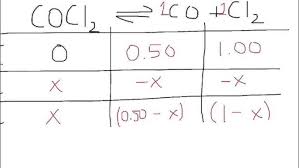 COCl₂ ⇌ 1CO + 1Cl₂
0 0.50 1.00
x -x -x
x (0.50 - x) (1 - x)